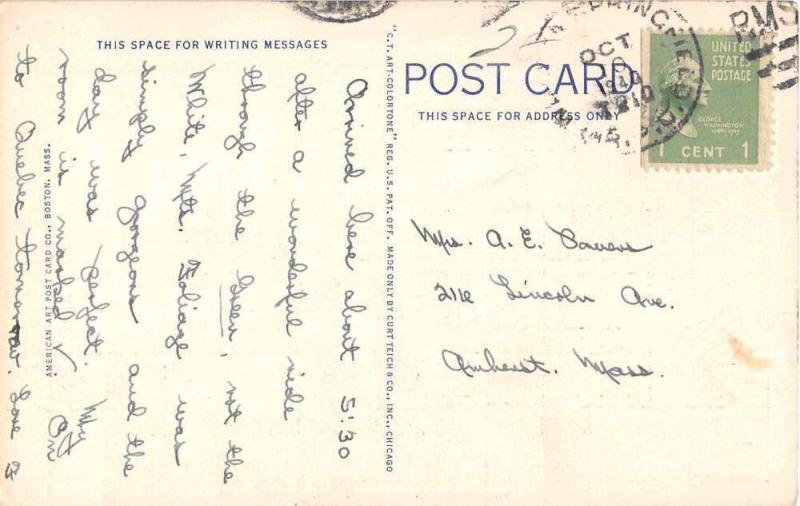 THIS SPACE FOR WRITING MESSAGES
Arrived here about 5:30
after a wonderful ride
through the Green, not the
White, Mts. Foliage was
simply gorgeous and the
day was perfect. My
room is marked ✓. On
to Quebec tomorrow. Love F
AMERICAN ART POST CARD CO., BOSTON, MASS.
"C.T. ART-COLORTONE" REG. U.S. PAT. OFF. MADE ONLY BY CURT TEICH & CO., INC., CHICAGO
POST CARD
THIS SPACE FOR ADDRESS ONLY
SPRINGFIELD
OCT
1940
RMS
UNITED
STATES
POSTAGE
GEORGE
WASHINGTON
1 CENT 1
Mrs. A. E. Bowers
Lincoln Ave.
Amherst. Mass.